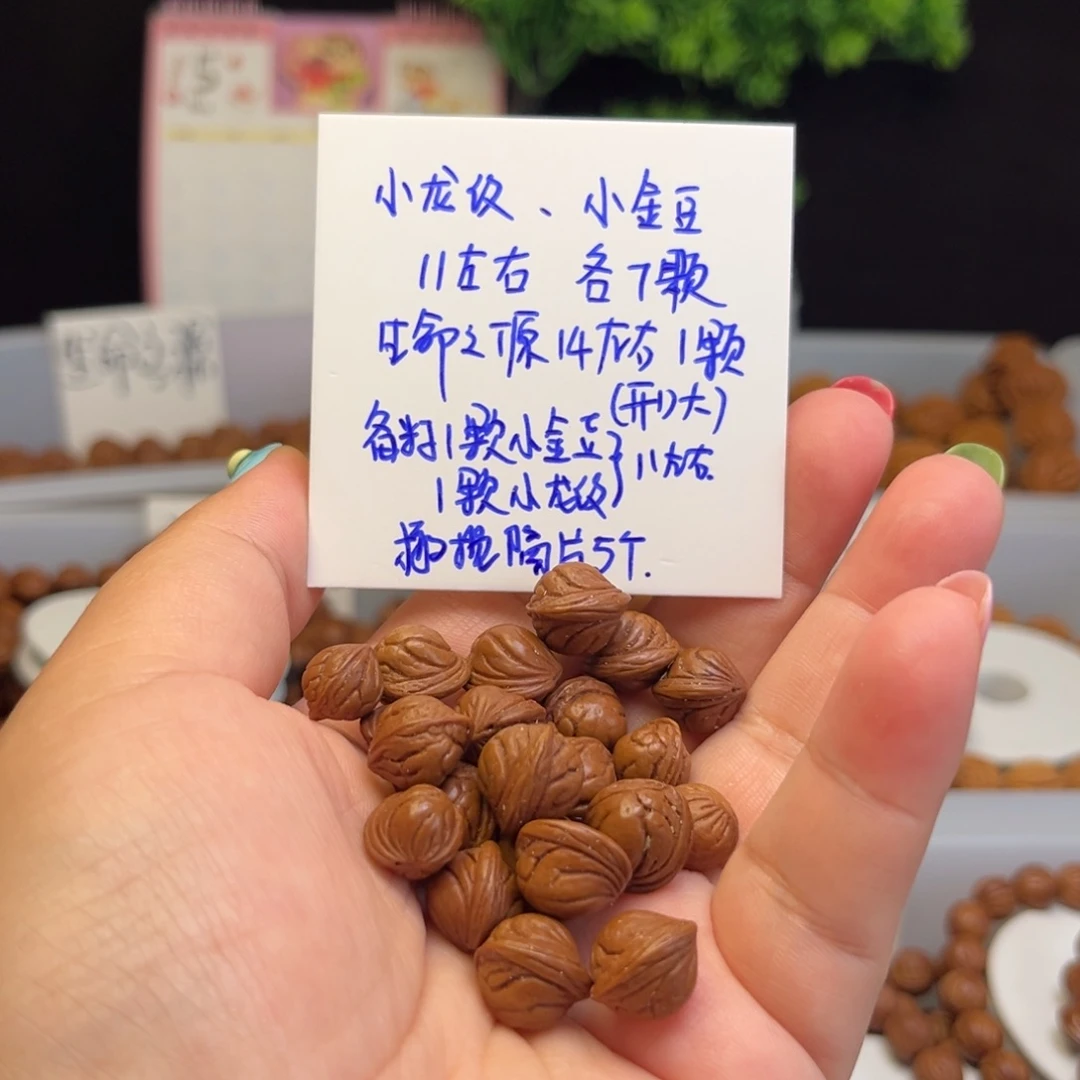 小龙纹、小金豆
11左右 各7颗
生命之源14左右 1颗
(开刂大)
备料1颗小金豆} 11左右.
1颗小龙纹
隔片5个.
生命之源
15